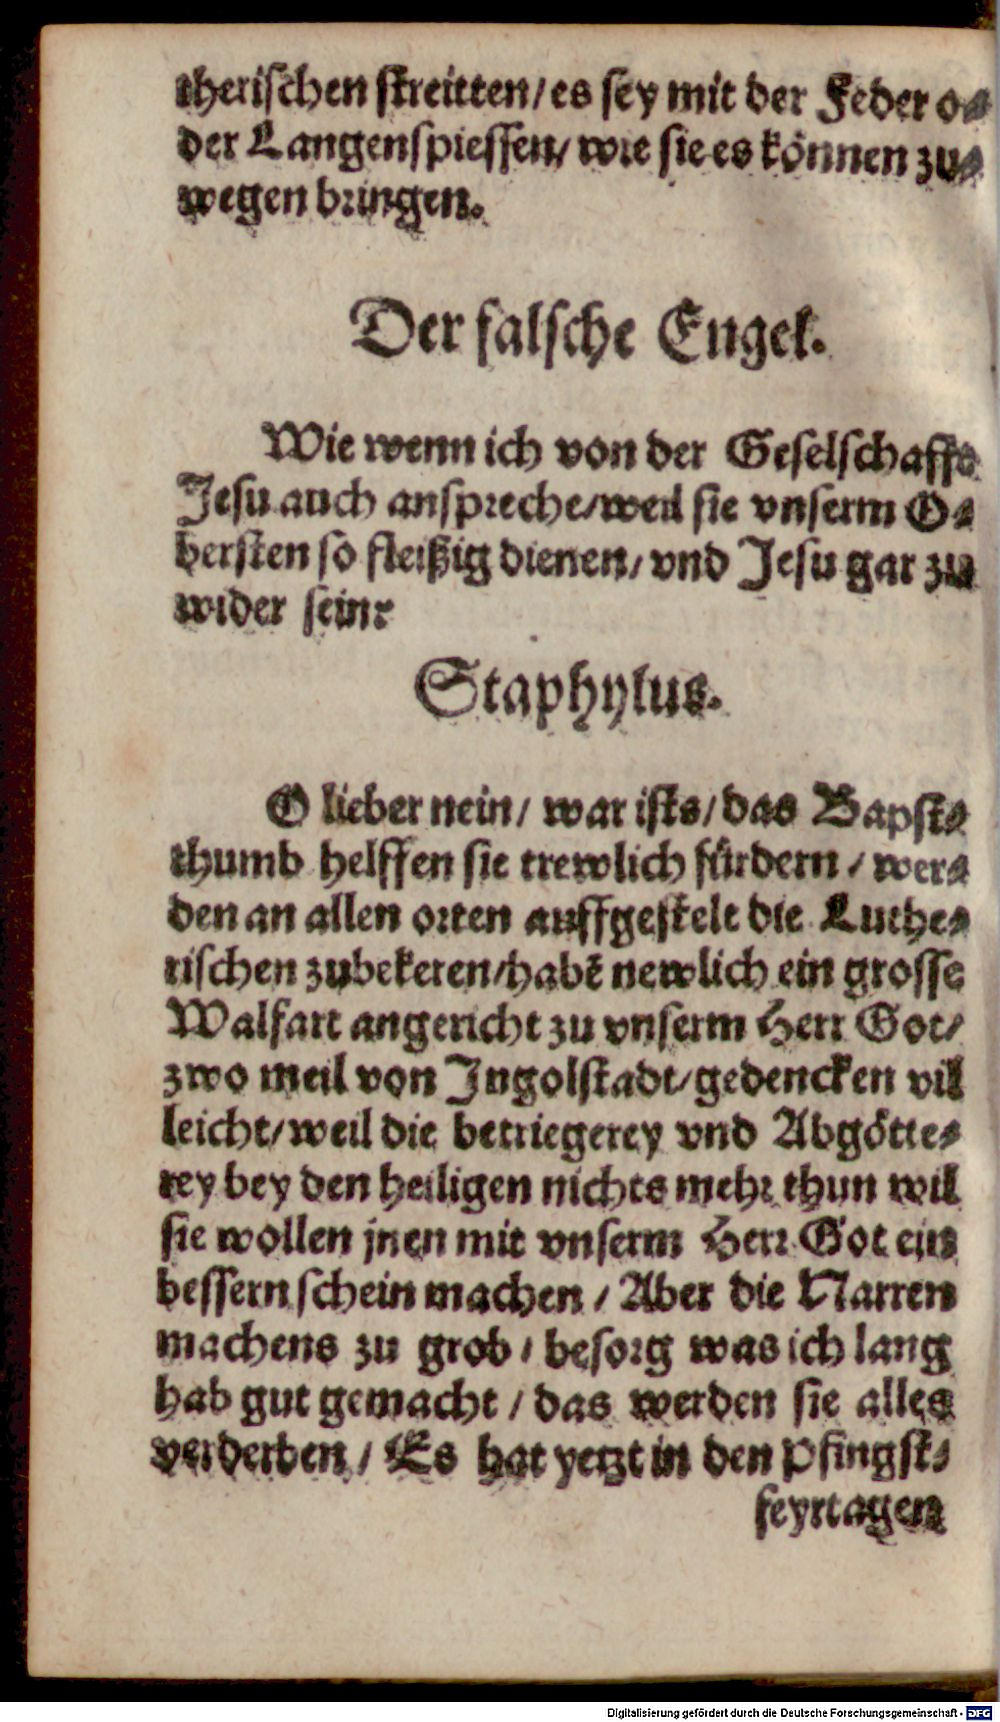 therischen streitten/ es sey mit der Feder o⸗
der Langenspiessen/ wie sie es können zu⸗
wegen bringen.
Der falsche Engel.
Wie wenn ich von der Geselschafft
Jesu auch anspreche/ weil sie vnserm O⸗
bersten so fleißig dienen/ vnd Jesu gar zu
wider sein?
Staphylus.
O lieber nein/ war ists/ das Bapst⸗
thumb helffen sie trewlich fürdern/ wer⸗
den an allen orten auffgestelt die Luthe⸗
rischen zubekeren/ habē newlich ein grosse
Walfart angericht zu vnserm Herr Got/
zwo meil von Ingolstadt/ gedencken vil
leicht/ weil die betriegerey vnd Abgötte⸗
rey bey den heiligen nichts mehr thun wil
sie wollen jnen mit vnserm Herr Got ein
bessern schein machen/ Aber die Narren
machens zu grob/ besorg was ich lang
hab gut gemacht/ das werden sie alles
verderben/ Es hat yetzt in den Pfingst⸗
feyrtagen
Digitalisierung gefördert durch die Deutsche Forschungsgemeinschaft - DFG